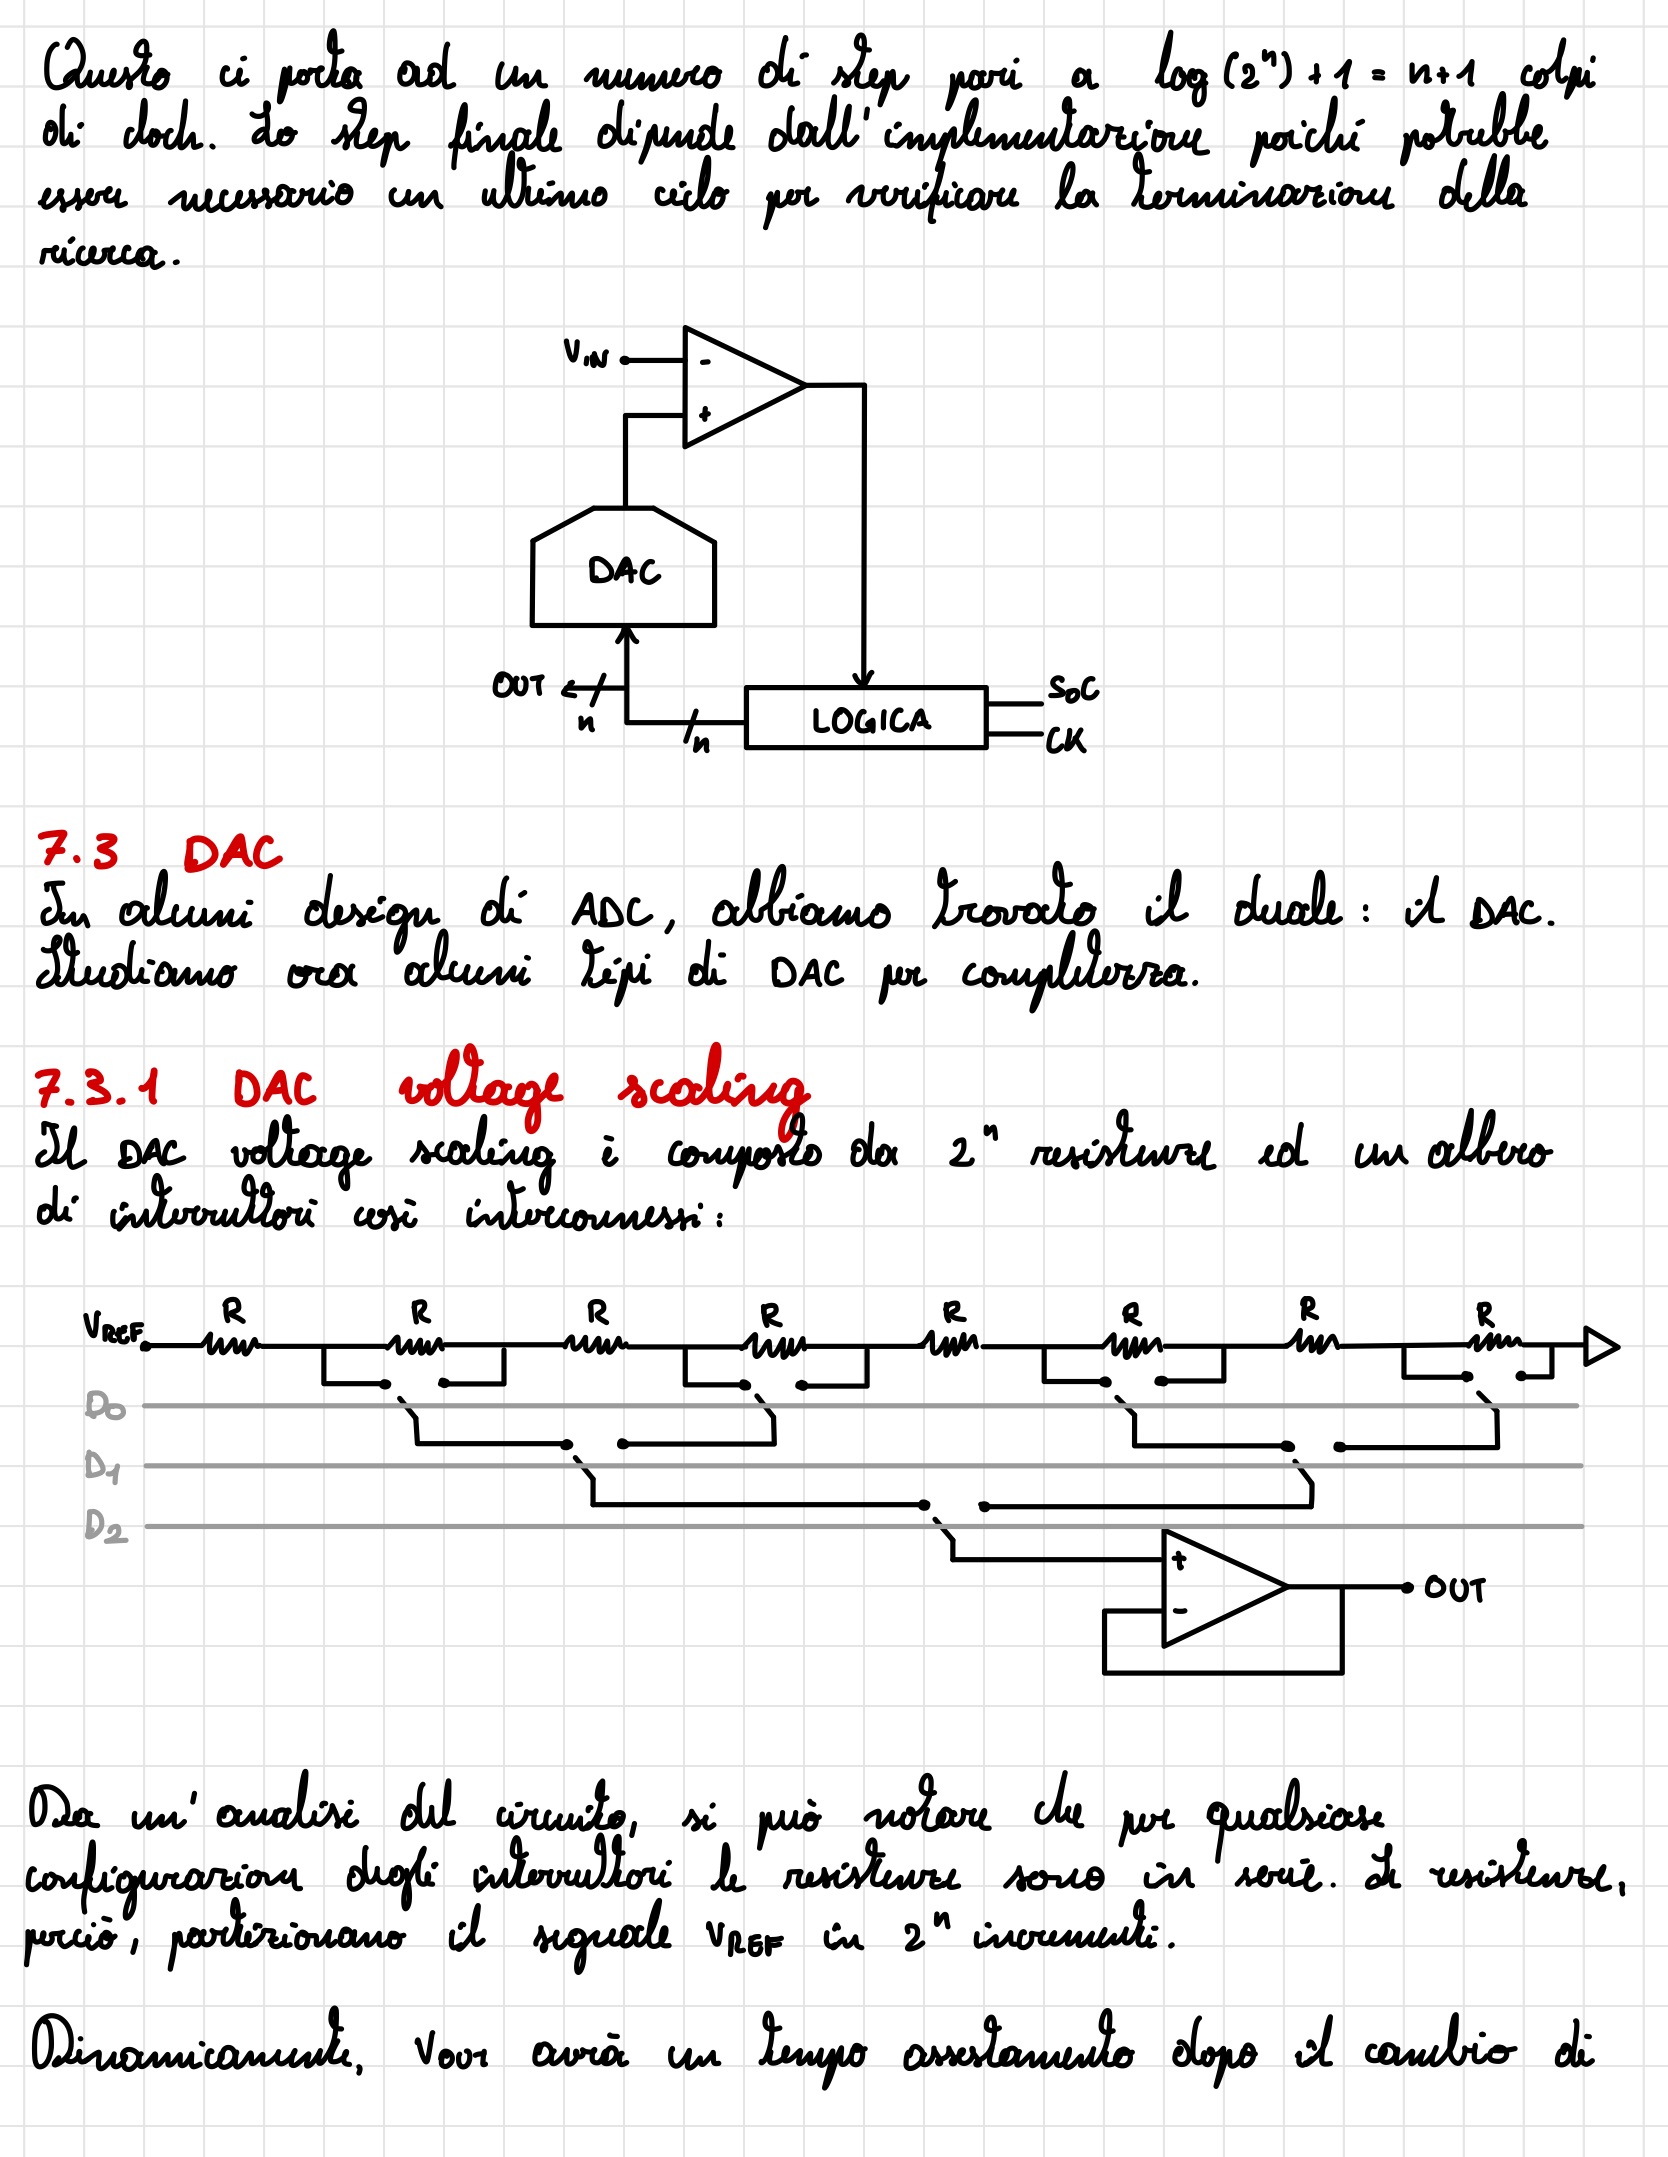 Questo ci porta ad un numero di step pari a log (2ⁿ) + 1 = n+1 colpi
di clock. Lo step finale dipende dall'implementazione poiché potrebbe
essere necessario un ultimo ciclo per verificare la terminazione della
ricerca.
V_IN
-
+
DAC
OUT
n
n
LOGICA
SOC
CK
7.3 DAC
In alcuni design di ADC, abbiamo trovato il duale: il DAC.
Studiamo ora alcuni tipi di DAC per completezza.
7.3.1 DAC voltage scaling
Il DAC voltage scaling è composto da 2ⁿ resistenze ed un albero
di interruttori così interconnessi:
V_REF R R R R R R R R
D0
D1
D2
+
-
OUT
Da un'analisi del circuito, si può notare che per qualsiase
configurazione degli interruttori le resistenze sono in serie. Le resistenze,
perciò, partizionano il segnale V_REF in 2ⁿ incrementi.
Dinamicamente, V_OUT avrà un tempo assestamento dopo il cambio di